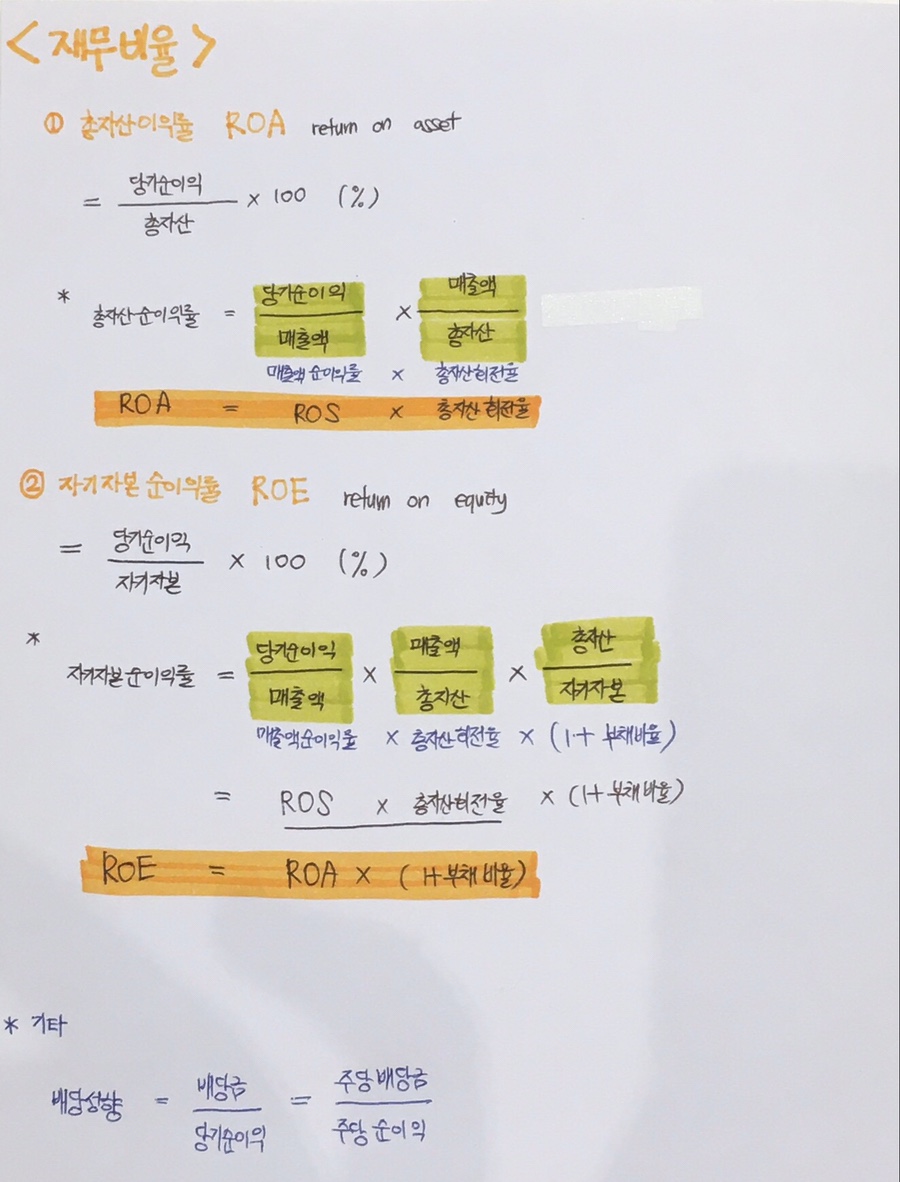 <재무비율>
① 총자산이익률 ROA return on asset
= 당기순이익 / 총자산 × 100 (%)
* 총자산순이익률 = 당기순이익 / 매출액 × 매출액 / 총자산
매출액순이익률 × 총자산회전율
ROA = ROS × 총자산회전율
② 자기자본순이익률 ROE return on equity
= 당기순이익 / 자기자본 × 100 (%)
* 자기자본순이익률 = 당기순이익 / 매출액 × 매출액 / 총자산 × 총자산 / 자기자본
매출액순이익률 × 총자산회전율 × (1+ 부채비율)
= ROS × 총자산회전율 × (1+ 부채비율)
ROE = ROA × (1+부채비율)
* 기타
배당성향 = 배당금 / 당기순이익 = 주당배당금 / 주당순이익